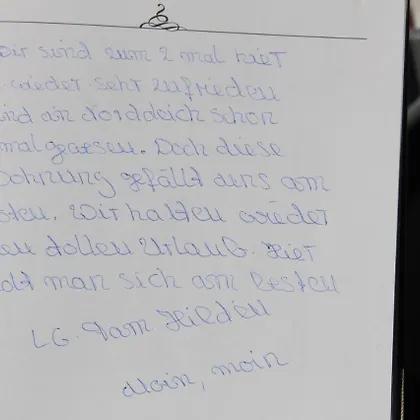 Wir sind zum 2 mal hier
wieder sehr zufrieden
sind in Norddeich schon
mal gewesen. Doch diese
Wohnung gefällt uns am
sten. Wir hatten wieder
en tollen Urlaub. Hier
olt man sich am besten
LG. Fam. Hilden
Moin, moin